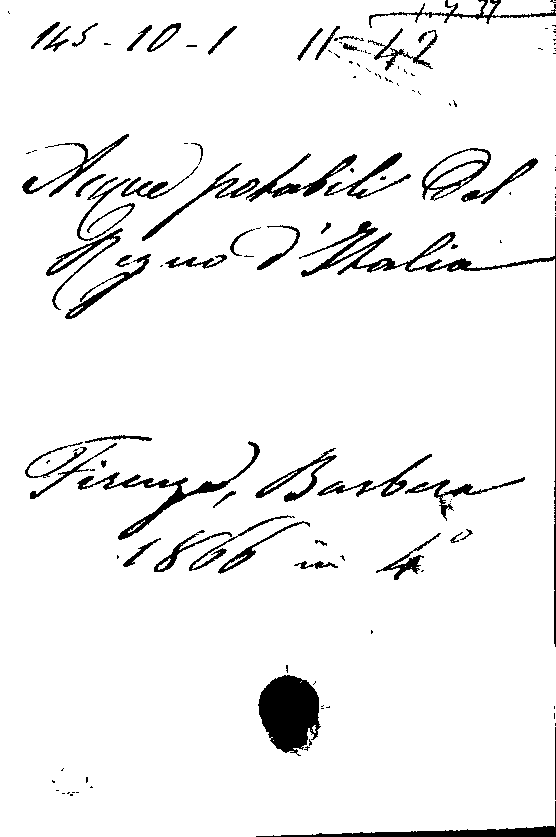 145-10-1 11-42
Acque potabili del
Regno d'Italia
Firenze, Barbera
1866 in 4°